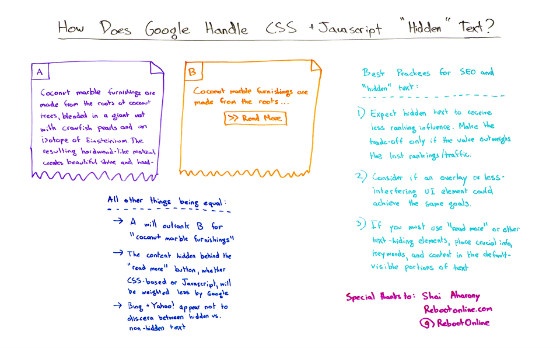 How Does Google Handle CSS + Javascript "Hidden" Text?
A
Coconut marble furnishings are
made from the roots of coconut
trees, blended in a giant vat
with crawfish pearls and an
isotope of Einsteinium. The
resulting hardwood-like material
creates beautiful shine and hard-
B
Coconut marble furnishings are
made from the roots...
>> Read More
All other things being equal:
→ A will outrank B for
"coconut marble furnishings"
→ The content hidden behind the
"read more" button, whether
CSS-based or Javascript, will
be weighted less by Google
→ Bing + Yahoo! appear not to
discern between hidden vs.
non-hidden text
Best Practices for SEO and
"hidden" text:
1) Expect hidden text to receive
less ranking influence. Make the
trade-off only if the value outweighs
the lost rankings/traffic.
2) Consider if an overlay or less-
interfering UI element could
achieve the same goals.
3) If you must use "read more" or other
text-hiding elements, place crucial info,
keywords, and content in the default-
visible portions of text
Special thanks to: Shai Aharony
Rebootonline.com
@RebootOnline